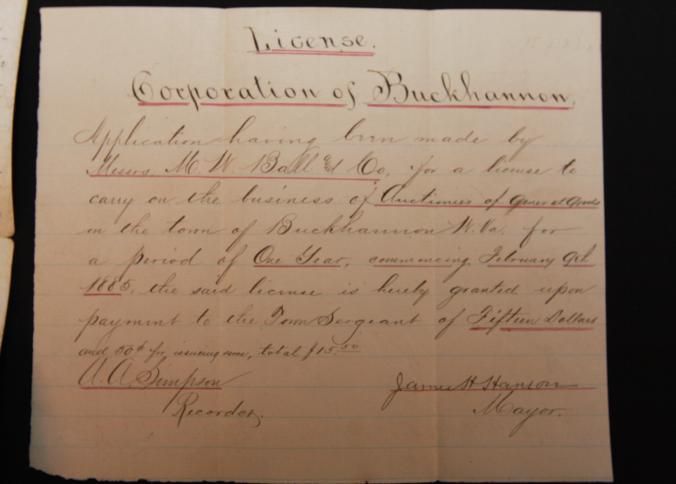 License.
Corporation of Buckhannon,
Application having been made by
Messrs M. W. Ball and Co, for a license to
carry on the business of Auctioneers of general Goods
in the town of Buckhannon W. Va. for
a period of One Year, commencing February 9th
1885, the said license is hereby granted upon
payment to the Town Sergeant of Fifteen Dollars
and 50¢ for issuing same, total $15.50
U. A. Simpson
Recorder.
James H Hanson
Mayor.